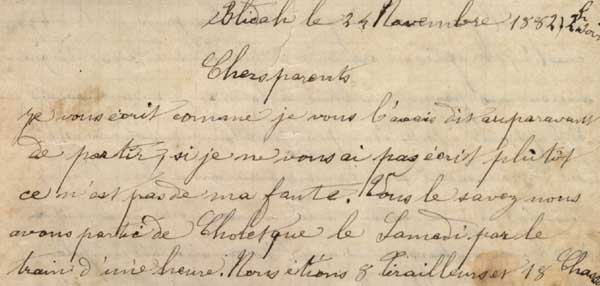 Blidah le 24 Novembre 1882
Chers parents
Je vous écrit comme je vous l'avais dit auparavant
de partir, si je ne vous ai pas écrit plutôt
ce n'est pas de ma faute. Vous le savez nous
avons partis de le Samedi par le
train d'une heure. Nous étions 8 tirailleurs et 18